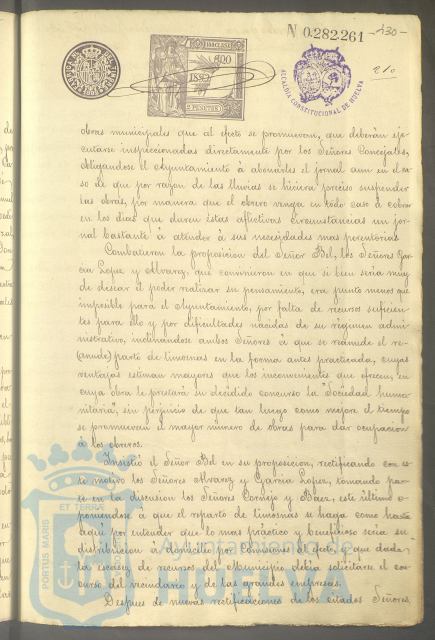 N 0.282.261
-430-
210
100 CLASE
1892
2 PESETAS
ALCALDIA CONSTITUCIONAL DE HUELVA
obras municipales que al efecto se promuevan, que deberán eje-
cutarse inspeccionadas directamente por los Señores Concejales,
obligandose el Ayuntamiento á abonarles el jornal aun en el ca-
so de que por razon de las lluvias se hiciera preciso suspender
las obras, por manera que el obrero venga en todo caso á cobrar
en los dias que duren éstas aflictivas circunstancias un jor-
nal bastante á atender á sus necesidades mas perentorias
Combatieron la proposicion del Señor Bel, los Señores Gar-
cia Lopez y Alvarez, que convinieron en que si bien seria muy
de desear el poder realizar su pensamiento, era punto menos que
imposible para el Ayuntamiento, por falta de recursos suficien-
tes para ello y por dificultades nacidas de su régimen admi-
nistrativo, inclinandose ambos Señores á que se reanude el re-
(anude) parto de limosnas en la forma antes practicada, cuyas
ventajas estiman mayores que los inconvenientes que ofrecen, en
cuya obra le prestará su decidido concurso la "Sociedad huma-
nitária", sin perjuicio de que tan luego como mejore el tiempo
se promuevan el mayor número de obras para dar ocupacion
á los obreros.
Insistió el Señor Bel en su proposicion, rectificando con es-
te motivo los Señores Alvarez y Garcia Lopez, tomando par-
te en la discusion los Señores Cornejo y Baez, este último o-
poniendose á que el reparto de limosnas se haga como hasta
aquí por entender que lo mas práctico y beneficioso seria su
distribucion á domicilio por Comisiones al efecto, y que dada
la escasez de recursos del Municipio debia solicitarse el con-
curso del vecindario y de las grandes empresas.
Despues de nuevas rectificaciones de los citados Señores,
ET TERRÆ
PORTUS MARIS
Ayuntamiento de
HUELVA